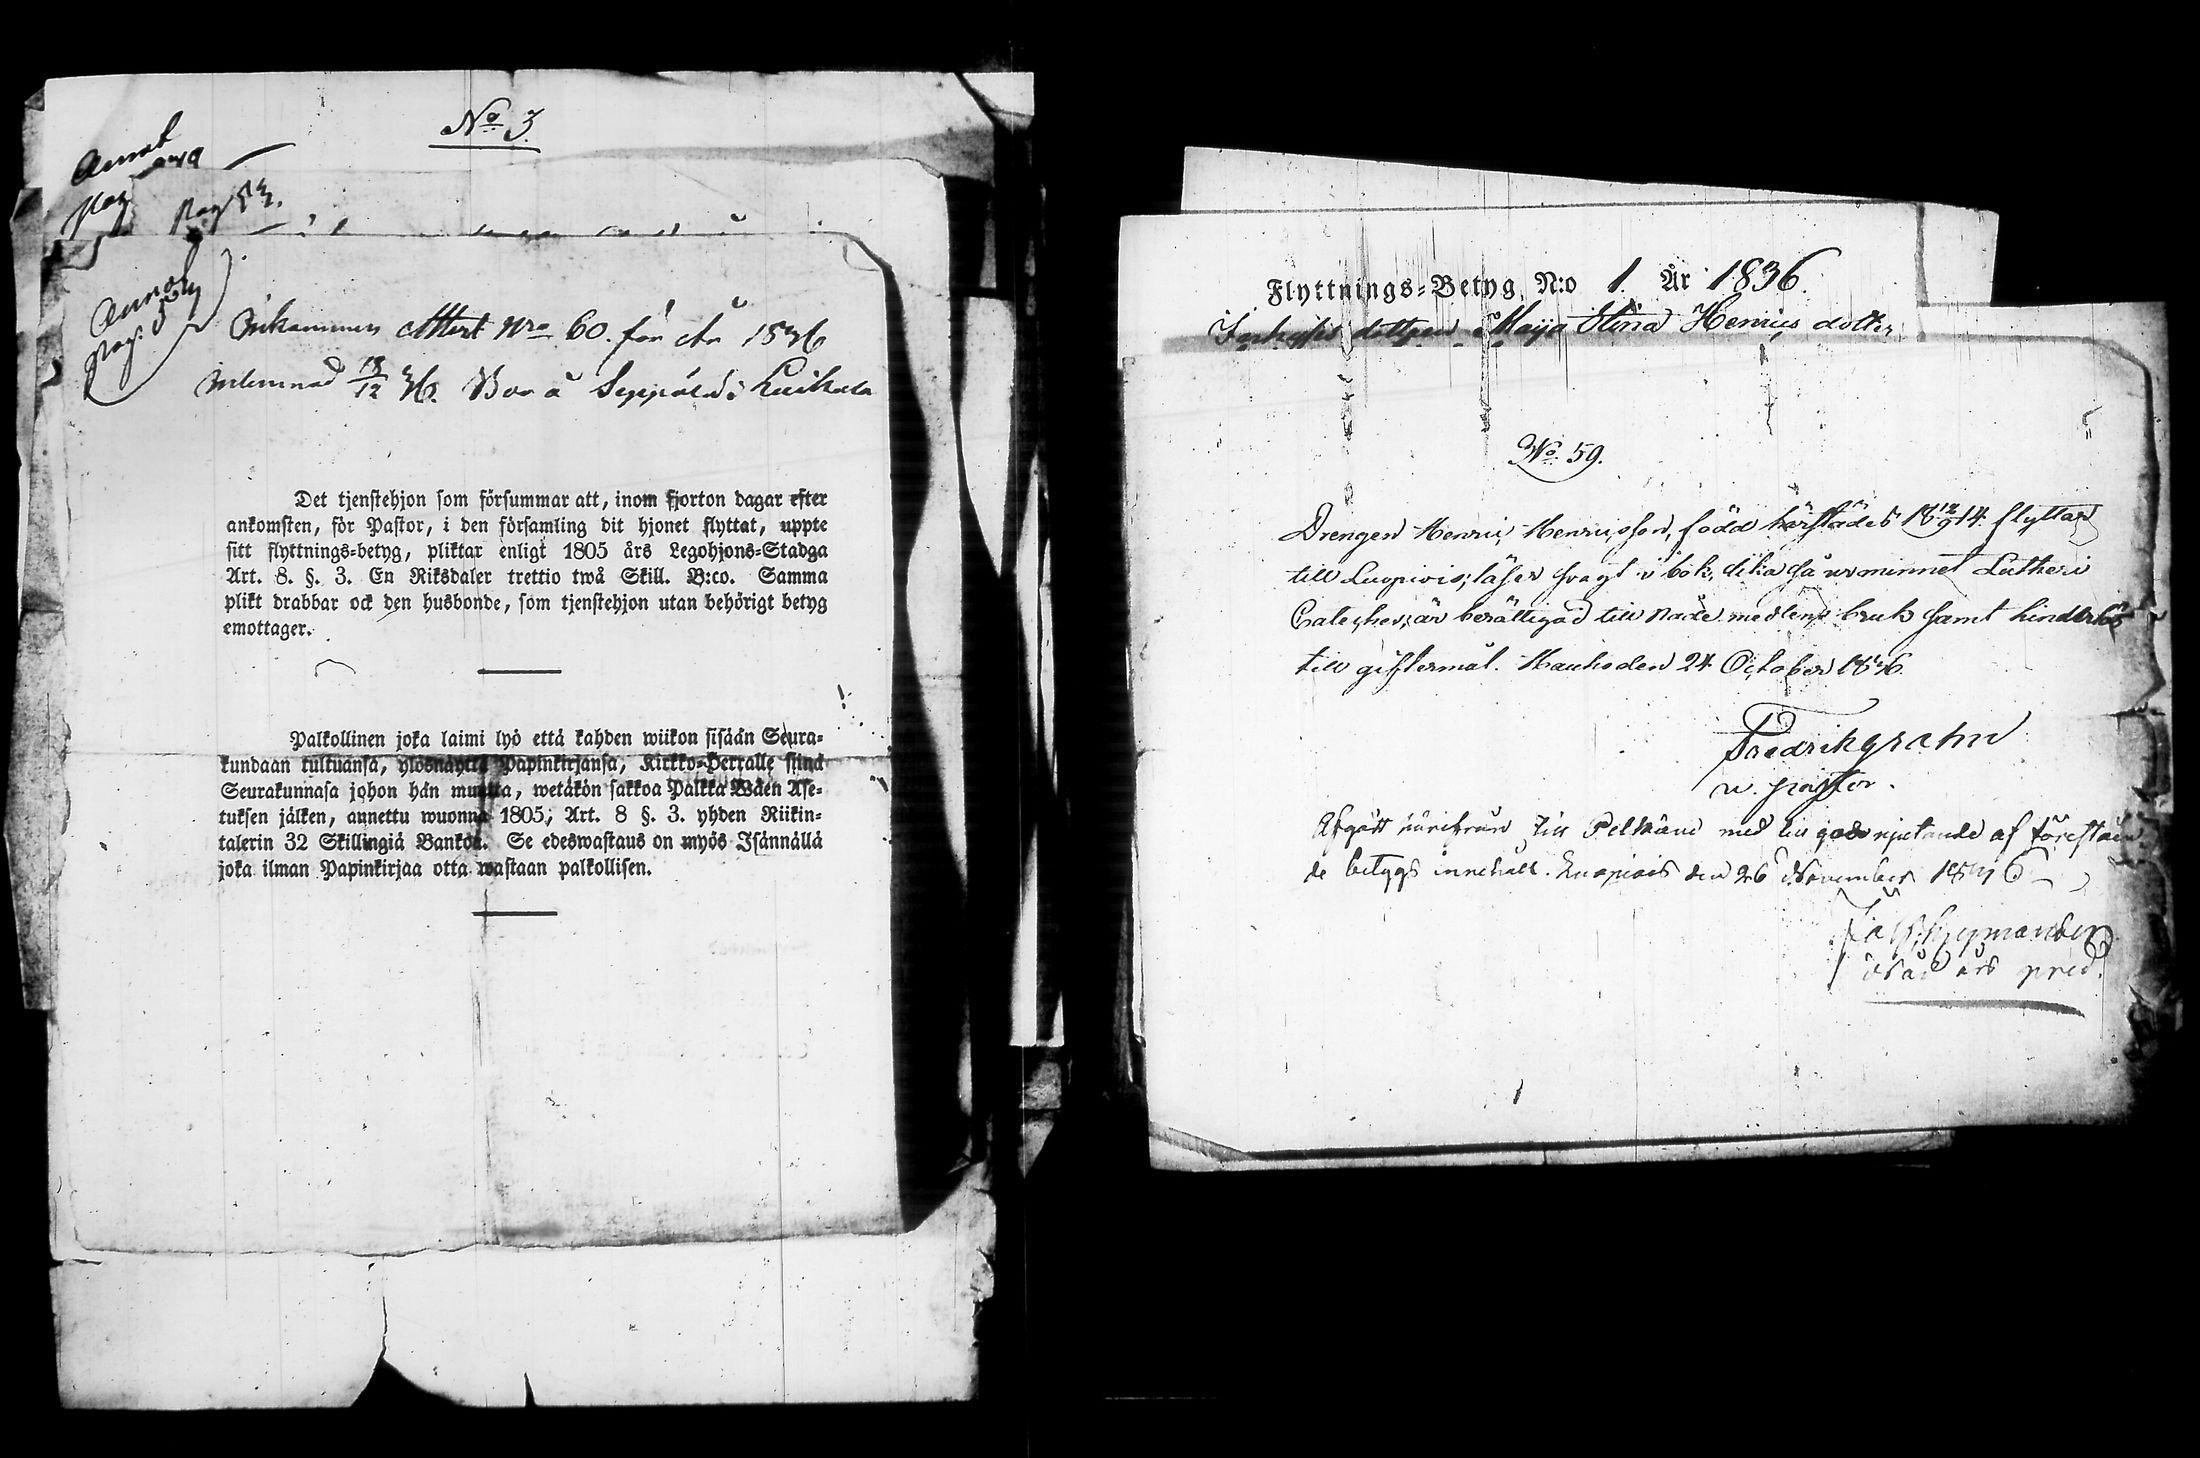 No 3.
Annot
pag
pag 53.
Annot
pag. 5
Inkommen Attest Nro 60. för År 1836
inlemnad 18/12 36. Bor å Seppälä i Luikala
Det tjenstehjon som försummar att, inom fjorton dagar efter
ankomsten, för Pastor, i den församling dit hjonet flyttat, uppte
sitt flyttnings-betyg, pliktar enligt 1805 års Legohjons-Stadga
Art. 8. §. 3. En Riksdaler trettio twå Skill. B:co. Samma
plikt drabbar ock den husbonde, som tjenstehjon utan behörigt betyg
emottager.
Palkollinen joka laimi lyö että kahden wiikon sisään Seura-
kundaan tultuansa, ylösnäyttä Papinkirjansa, Kirkko-Herralle siinä
Seurakunnasa johon hän muutta, wetäkön sakkoa Palkka Wäen Ase-
tuksen jälken, annettu wuonna 1805, Art. 8 §. 3. yhden Riikin-
talerin 32 Skillingiä Bankos. Se edeswastaus on myös Isännällä
joka ilman Papinkirjaa otta wastaan palkollisen.
Flyttnings-Betyg, N:o 1. År 1836.
Inhyses dottren Maija Stina Henrics dotter
No 59.
Drengen Henric Henricsson, född härstädes 18 12/9 14. flyttar
till Luopiois; läser svagt i bok, lika så ur minnet Lutheri
Cateches; är berättigad till Nådemedlens bruk samt hinderlös
till giftermål. Hauho den 24 October 1836.
Fredrik Grahn
v. pastor.
Afgått härifrån till Pelkäne med lin godt njutande af föreståen-
de betygs innehåll. Luopiois den 26 November 1836
pred.